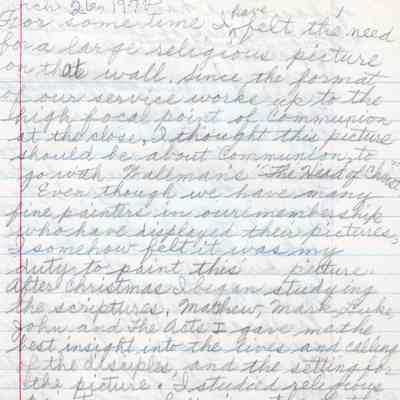 rch 26, 1975
For some time I have felt the need
for a large religious picture
on that wall, since the format
of our service works up to the
high focal point of communion
at the close, I thought this picture
should be about Communion, to
go with Wallman's "The Head of Christ"
Even though we have many
fine painters in our membership
who have displayed their pictures,
I somehow felt it was my
duty to paint this picture.
After Christmas I began studying
the scriptures. Mathew, Mark, Luke
John and The Acts I gave me the
best insight into the lives and calling
of the disciples, and the setting for
the picture. I studied religious